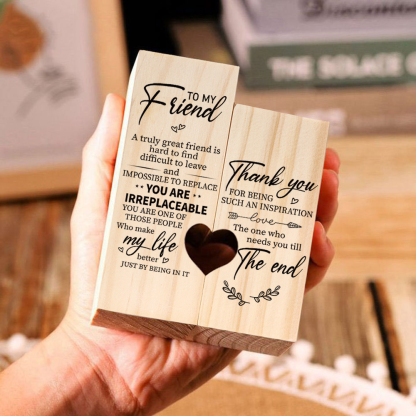 TO MY
Friend
A truly great friend is
hard to find
difficult to leave
and
IMPOSSIBLE TO REPLACE
YOU ARE
IRREPLACEABLE
YOU ARE ONE OF
THOSE PEOPLE
Who make
my life
better
JUST BY BEING IN IT
Thank you
FOR BEING
SUCH AN INSPIRATION
love
The one who
needs you till
The end
THE SOLACE O